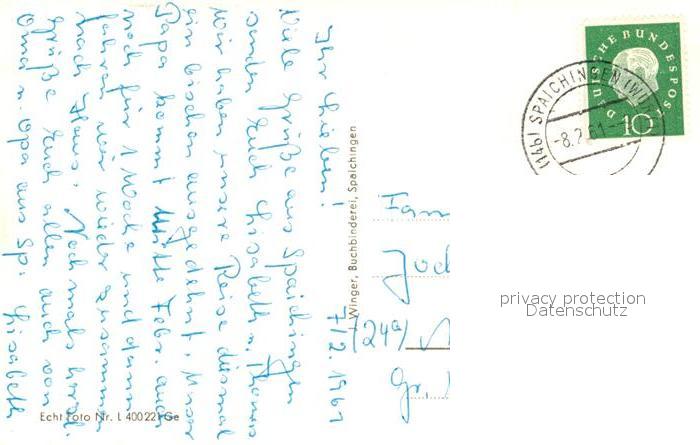 7/2. 1961
Ihr Lieben!
Viele Grüße aus Spaichingen
senden Euch Lisabeth u.
Wir haben unsere Reise diesmal
ein bischen ausgedehnt. Unser
Papa kommt Mitte Febr. auch
noch für 1 Woche und dann
fahren wir wieder zusammen
nach Haus. Nochmals herzl.
Grüße Euch allen auch von
Oma u. Opa aus Sp. Lisabeth
Winger, Buchbinderei, Spaichingen
Echt Foto Nr. L 400221 Ge
DEUTSCHE BUNDESPOST
10
(14b) SPAICHINGEN (WÜ
-8.2.61-
Fam
Joc
(24a)
Gr.
privacy protection
Datenschutz